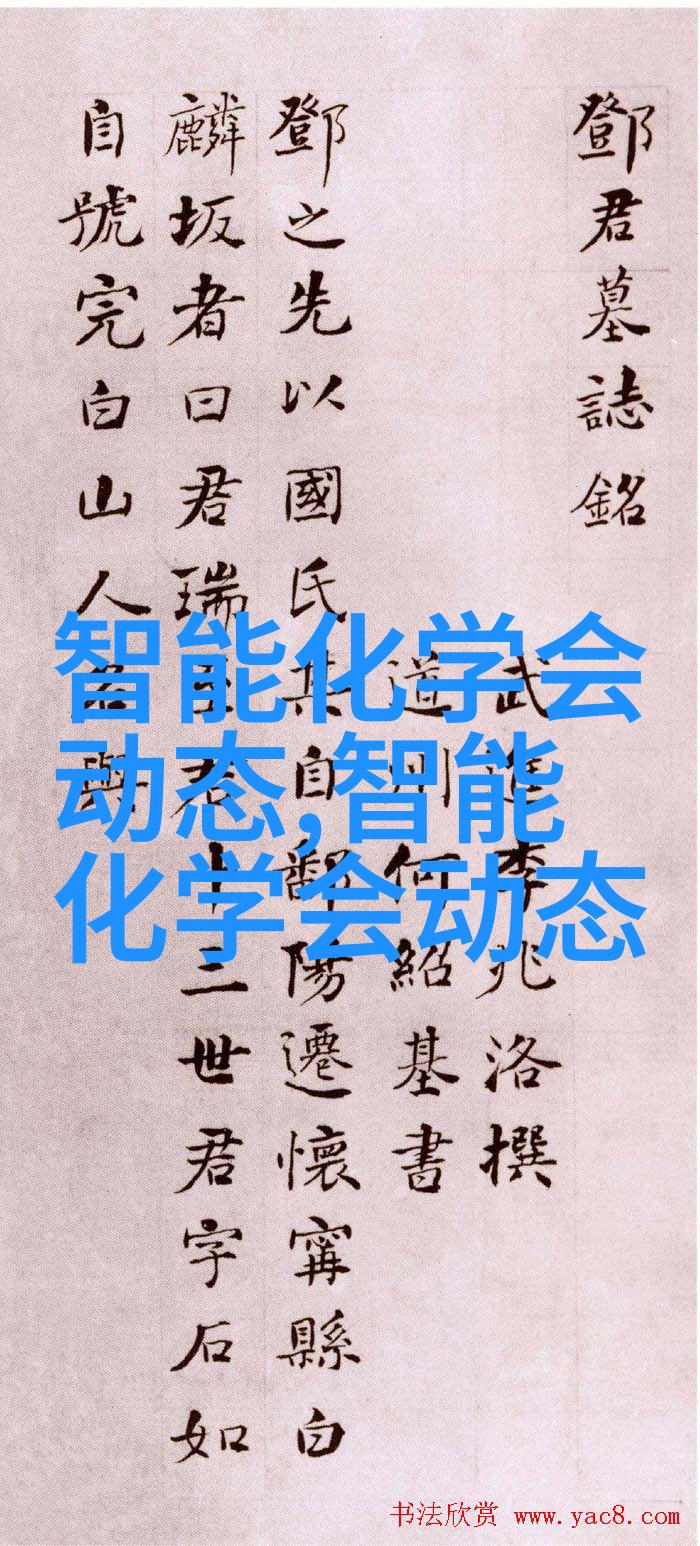 鄧君墓誌銘
武進李兆洛撰
道州何紹基書
鄧之先以國氏其自鄱陽遷懷甯縣白
麟坂者曰君瑞至君十三世君字石如
自號完白山人與
智能化学会
动态,智能
化学会动态
书法欣赏 www.yac8.com